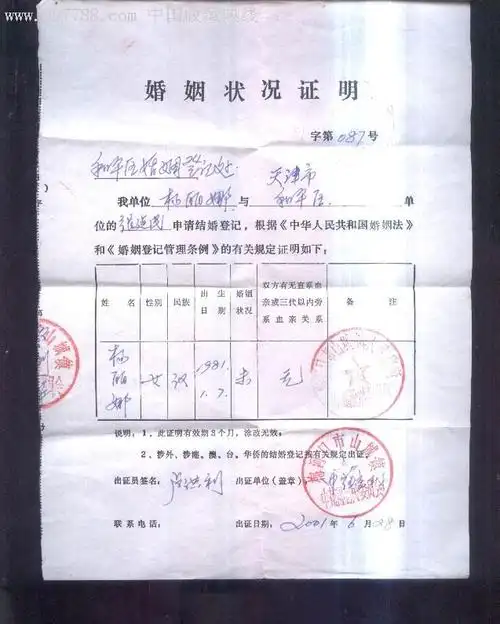 7788.com 中国收藏热线
婚姻状况证明
字第 087 号
和平区婚姻登记处:
天津市
我单位 杨丽娜 与 和平区 单
位的 申请结婚登记,根据《中华人民共和国婚姻法》
和《婚姻登记管理条例》的有关规定证明如下:
姓名 性别 民族 出生日期 婚姻状况 双方有无直系血亲或三代以内旁系血亲关系 备注
杨丽娜 女 汉 1981.1.7. 未 无
说明:1、此证明有效期3个月,涂改无效;
2、涉外、涉港、澳、台、华侨的结婚登记按有关规定出证。
出证员签名: 出证单位(盖章):
联系电话: 出证日期:2001年6月08日